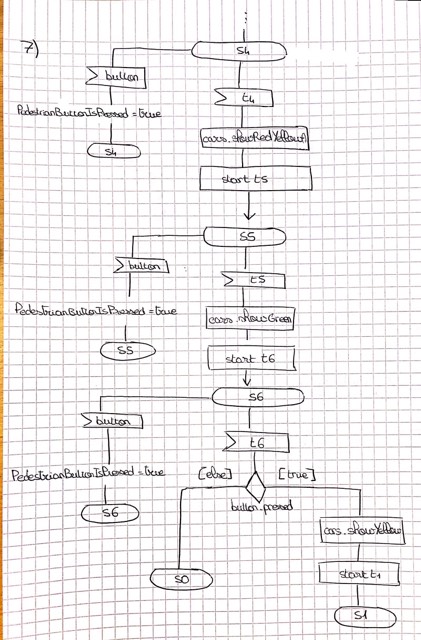 7)
S4
button
t4
PedestrianButtonIsPressed = true
cars.showRedYellow
S4
start t5
S5
button
t5
PedestrianButtonIsPressed = true
cars.showGreen
S5
start t6
S6
button
t6
PedestrianButtonIsPressed = true
[else]
[true]
button.pressed
S6
cars.showYellow
S0
start t1
S1